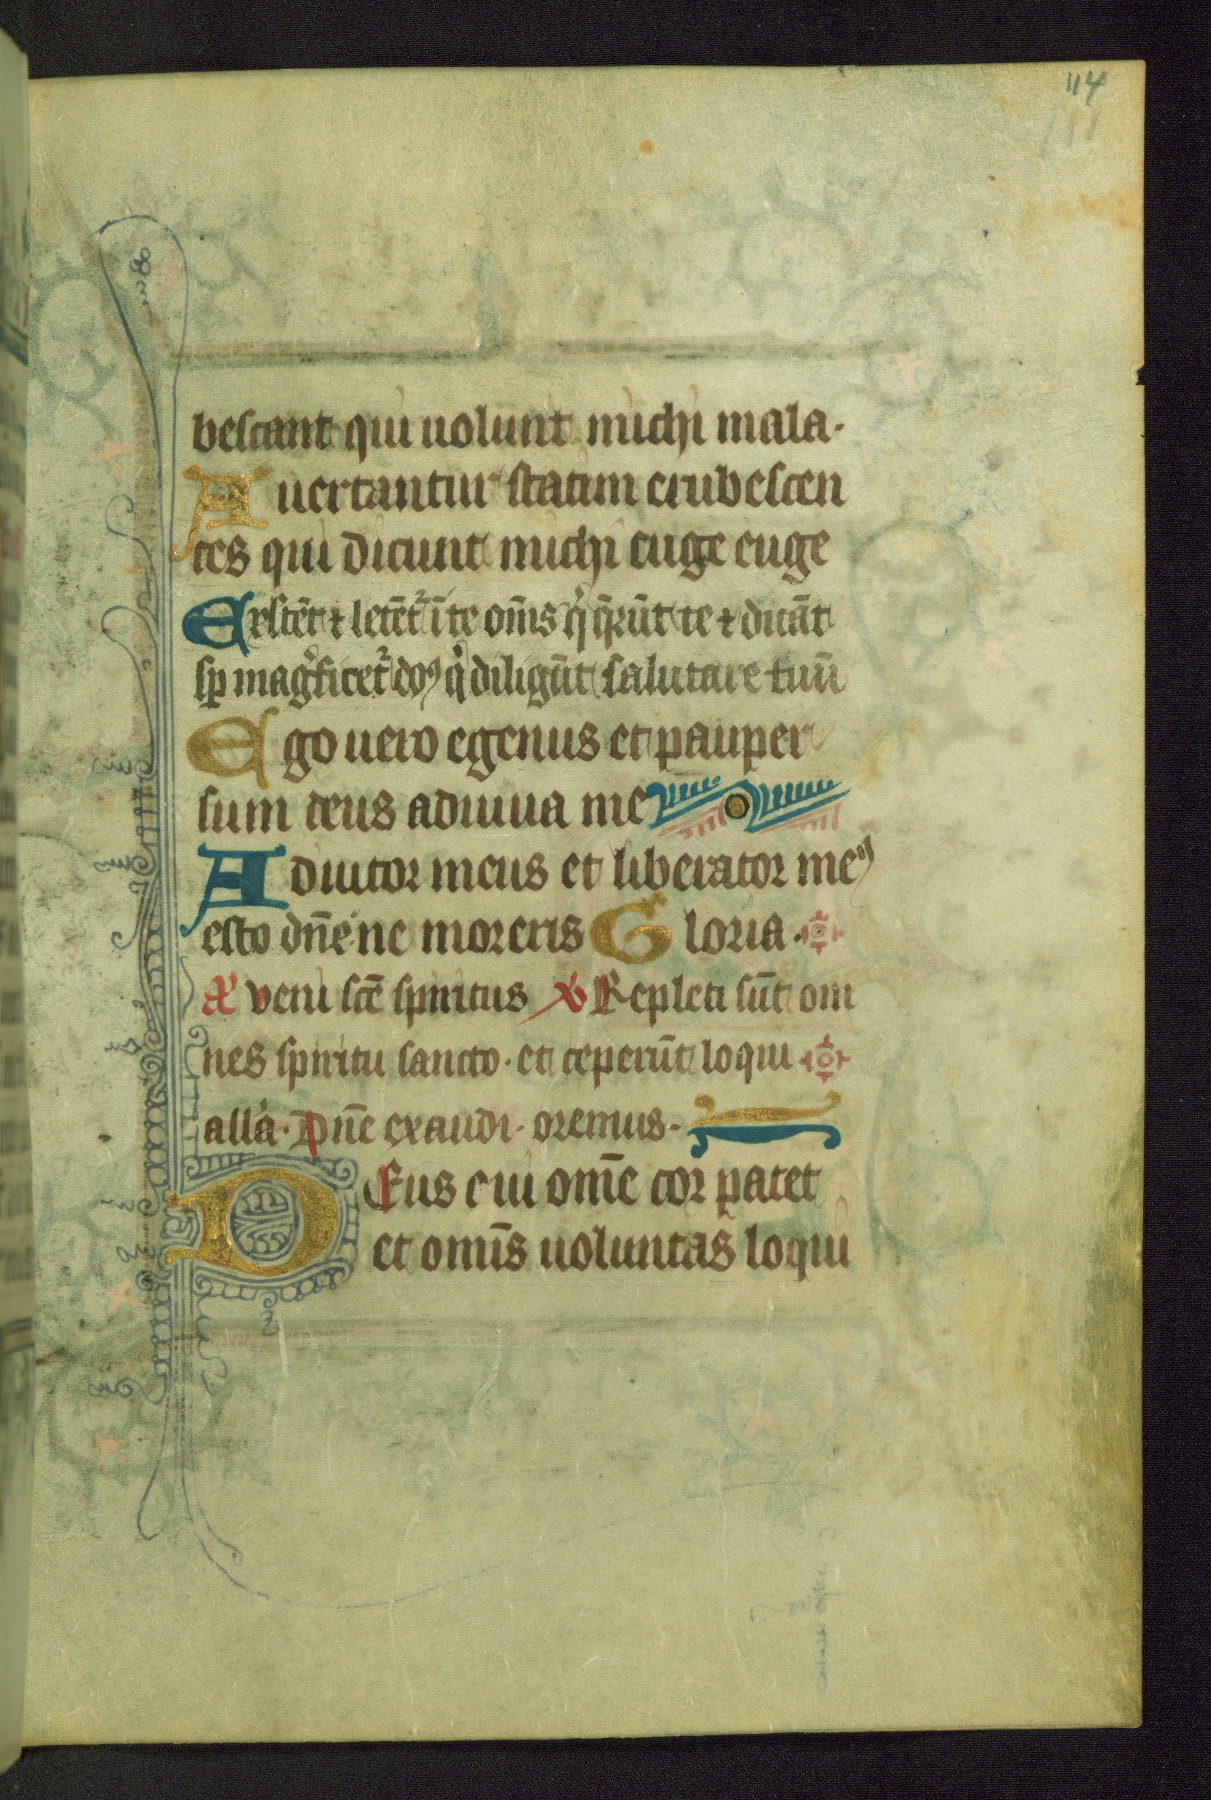 114
bescant qui uolunt michi mala·
Auertantur statim erubescen
tes qui dicunt michi euge euge
Exſtēt ⁊ letēt᷑ ī te om̄s q̇ q̄rūt te ⁊ dicāt
sꝑ magͥficet᷑ dn̄s q̇ diligūt salutare tuū
Ego uero egenus et pauper
sum deus adiuua me
Adiutor meus et liberator meꝰ
esto dn̄e ne moreris Gloria·
A᷑ veni sc̄e spiritus ℣ Repleti sūt om
nes spiritu sancto· et ceperūt loqui
alla· Dn̄e exaudi· oremus·
DEus cui om̄e cor patet
et omīs uoluntas loqui